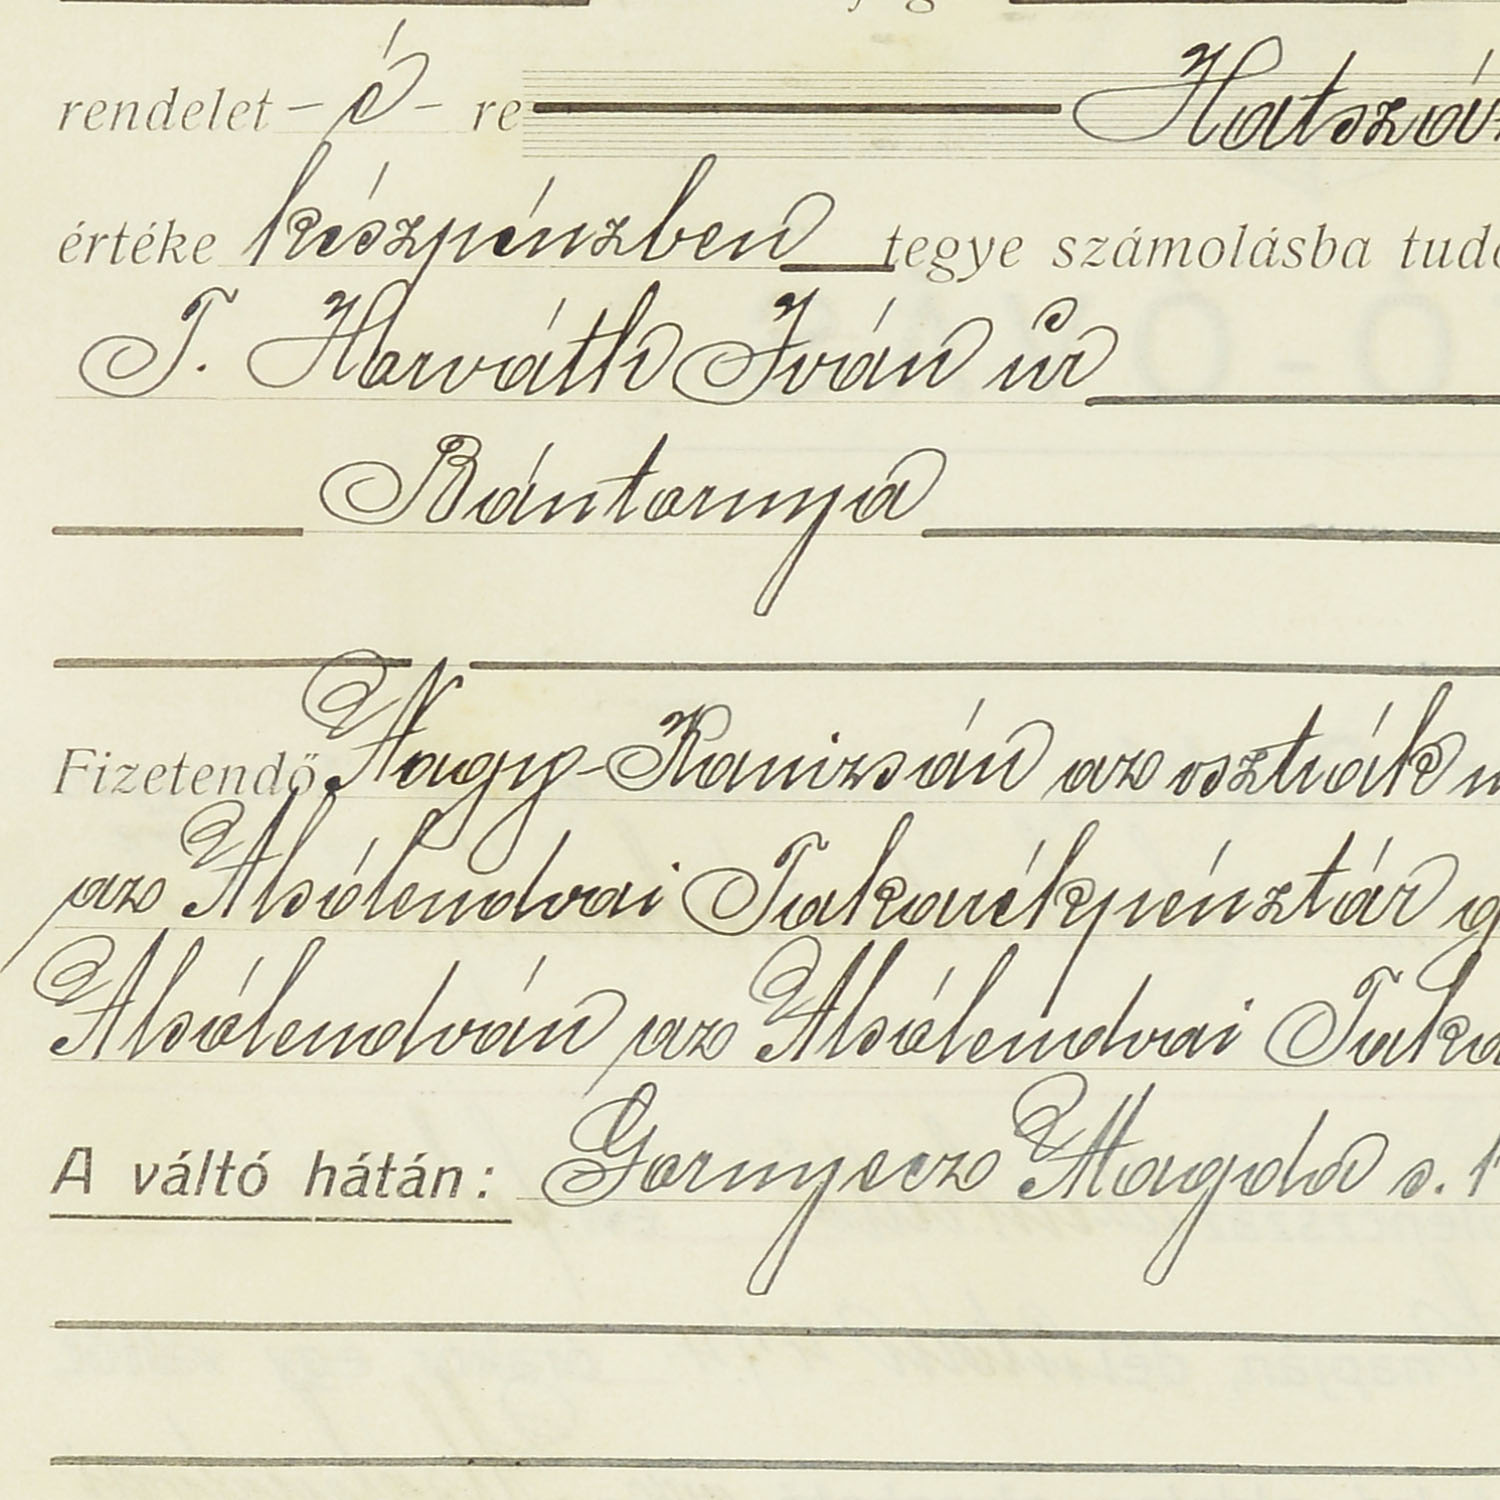 rendelet - é - re Hatszáz
értéke készpénzben tegye számolásba tudó
T. Horváth Iván úr
Bántornya
Fizetendő Nagy-Kanizsán az osztrák
az Alsólendvai Takarékpénztár
Alsólendván az Alsólendvai Taka
A váltó hátán: Gornyecz Magda s. k